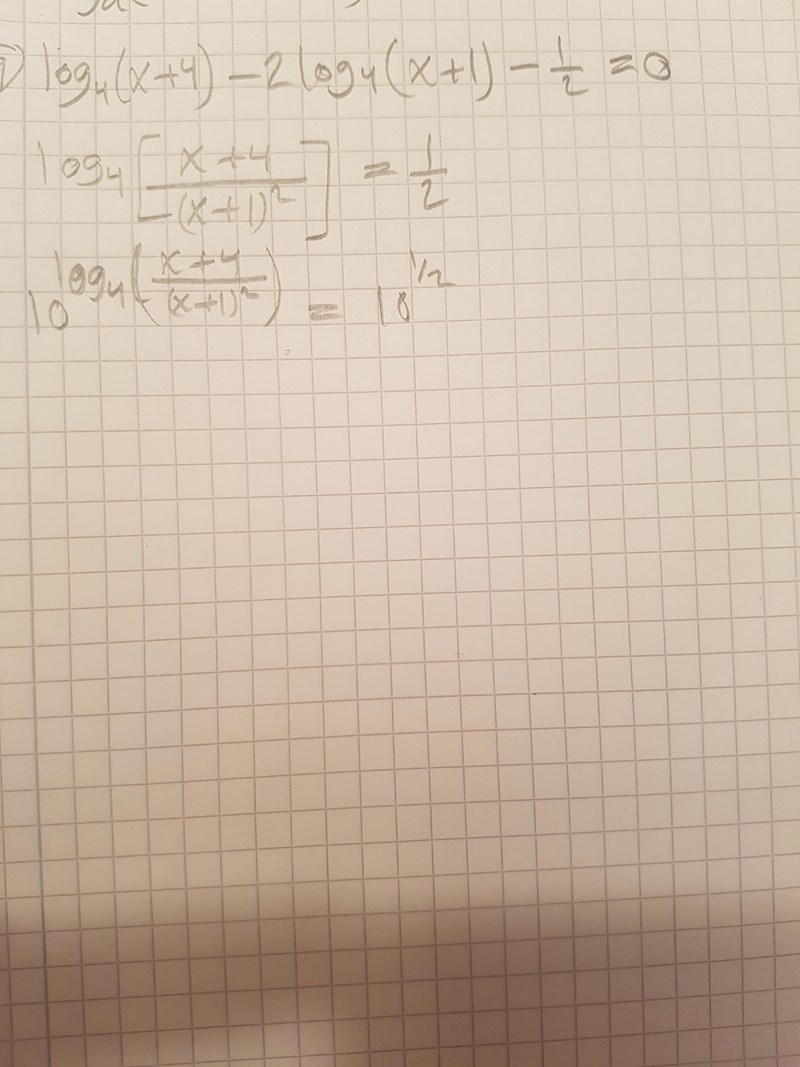 log₄(x+4) − 2log₄(x+1) − 1/2 = 0
log₄[(x+4)/(x+1)²] = 1/2
10^(log₄((x+4)/(x+1)²)) = 10^(1/2)